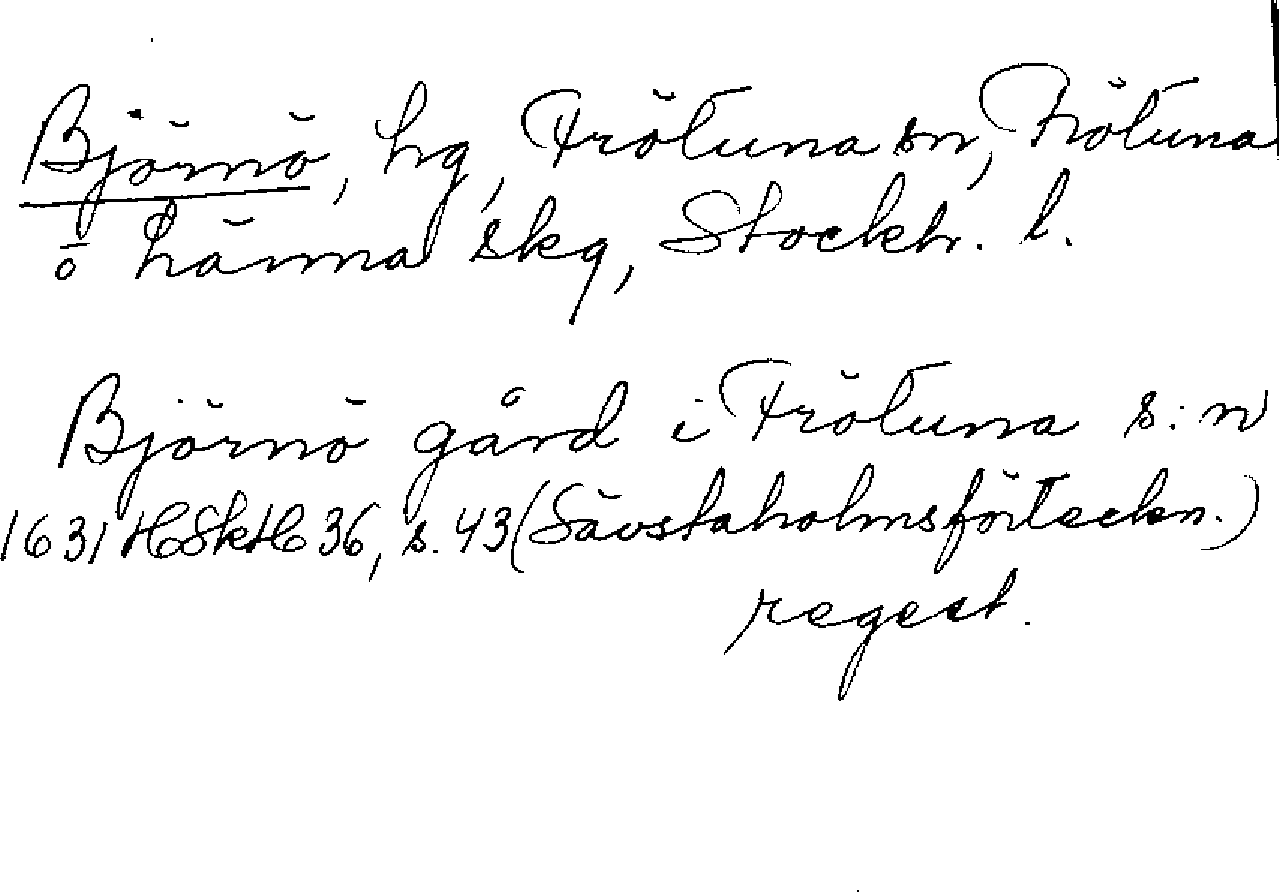 Björnö, hg, Frötuna sn, Frötuna
o Länna skg, Stockh. l.
Björnö gård i Frötuna s:n
1631 HSkH 36, s. 43 (Sävstaholmsförteckn.)
regest.